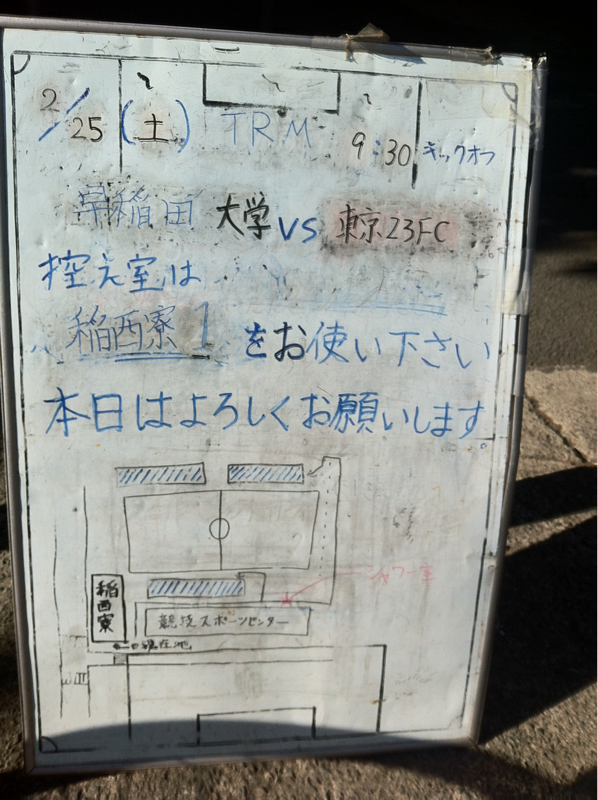 2/25(土) TRM 9:30 キックオフ
早稲田大学 vs 東京23FC
控え室は
稲西寮1をお使い下さい
本日はよろしくお願いします
シャワー室
稲西寮
競技スポーツセンター
現在地